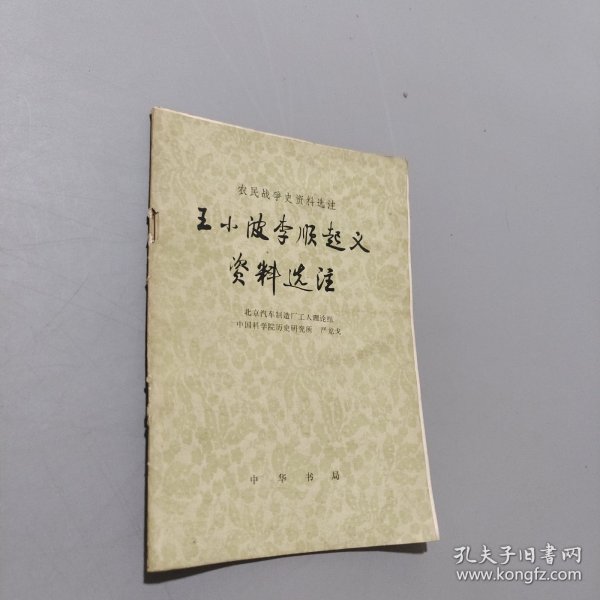 农民战争史资料选注
王小波李顺起义
资料选注
北京汽车制造厂工人理论组
中国科学院历史研究所 严龙戈
中华书局
孔夫子旧书网
www.kongfz.com